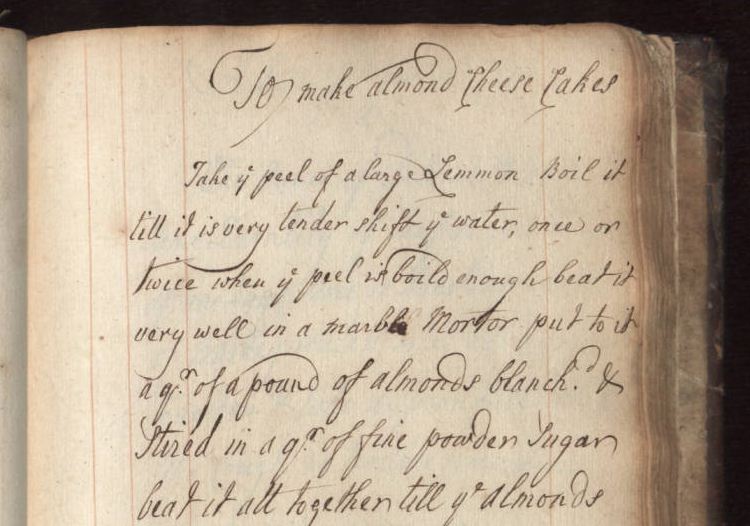 To make almond Cheese Cakes
Take yᵉ peel of a large Lemmon Boil it
till it is very tender shift yᵉ water, once or
twice when yᵉ peel is boild enough beat it
very well in a marble Mortor put to it
a qʳ. of a pound of almonds blanch.ᵈ &
Stired in a qʳ. of fine powder Sugar
beat it all together till yᵉ almonds